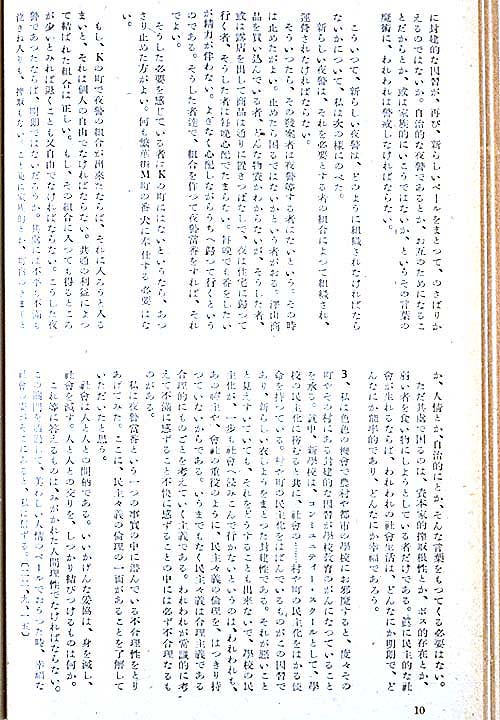 に封建的な因習が、再び、新らしいベールをまとつて、のさばりか
えるのではないか。自治的な夜警であるとか、お互のためになるこ
とだからとか、或は家族的にいこうではないか、というその言葉の
魔術に、われわれは警戒しなければならない。
こういつて、新らしい夜警は、どのように組織されなければなら
ないかについて、私は次の様にのべた。
新らしい夜警は、それを必要とする者の組合によつて組織され、
運営されなければならない。
そういつたら、その発案者は夜警等する者はないという。その時
は止めたがよい。止めたら困るではないかという者がおる。澤山商
品を買い込んでいる者、どんな物資かわからないが、そうした者、
或は露店を出して商品は通りに置きつぱなしで、夜は住宅に歸つて
行く者、そうした者は毎晩心配でたまらない。毎晩でも番をしたい
が精力が伴わない。よぎなく心配しながらうちへ歸つて行くという
のである。そうした者達で、組合を作つて夜警當番をすれば、それ
でよい。
そうした必要を感じている者はKの町にはないというなら、あつ
さり止めた方がよい。何も繁華街M町の番犬に奉仕する必要はな
い。
もし、Kの町で夜警の組合が出來たならば、それに入ろうと入る
まいと、それは個人の自由でなければならない。共通の利益によつ
て結ばれた組合は正しい。もし、その組合に入つても得るところ
が少いとみれば退くことも又自由でなければならない。こうした夜
警であつたならば、明朗ではないだろうか。其處には不平も不滿も
泣きね入りも、搾取もない。
か、人情とか、自治的にとか、そんな言葉をもつてくる必要はない。
ただ其處で困るのは、資本家的搾取根性とか、ボス的存在とか、
弱い者を食い物にしようとしている者だけである。眞に民主的な社
會が生れるならば、われわれの社會生活は、どんなにか明朗で、ど
んなにか能率的であり、どんなにか幸福であろう。
3、私は色色の機會で農村や都市の學校にお邪魔すると、度々その
町やその村にある封建的な因習が學校教育のがんになつていること
を承る。就中、新學校は、コンミュニティー・スクールとして、學
校の民主化に務むると共に、社會の……村や町の民主化をはかる使
命を持つている。村や町の民主化をはばんでいるものがこの因習で
あり、新らしい衣しようをまとつた封建性である。それが惡いこと
と見えすいていても、それをどうすることも出來ないで、學校の民
主化が、一歩も社會へ浸みこんで行かないというのは、われわれも、
あの寄主や、會社の重役のように、民主々義の倫理を、はつきり持
つていないからである。いうまでもなく民主々義は合理主義である
合理的にものごとを考えていく主義である。われわれが常識的に考
えて不滿に感ずること不快に感ずることの中には必ず不合理なるも
のがある。
私は夜警當番という一つの事實の中に潜んでいる不合理性をとり
あげてみた。ここに、民主々義の倫理の一面があることを了解して
いただいたと思う。
社會は人と人との間柄である。いいかげんな妥協は、身を減し、
社會を減す。人と人の交りを、しつかり結びつけるものは何か。
これ等に答えるものはみがかれた人間理性でなければならない。
この關門を通過して、美わしい人情のベールでおうつた時、幸福な
社會
になると、私は信ずる。
10